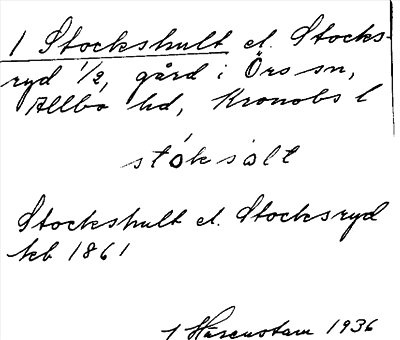 1 Stockshult el. Stocks-
ryd 1/2, gård i Örs sn,
Allbo hd, Kronobs l
støksölt
Stockshult el. Stocksryd
kb 1861
1936